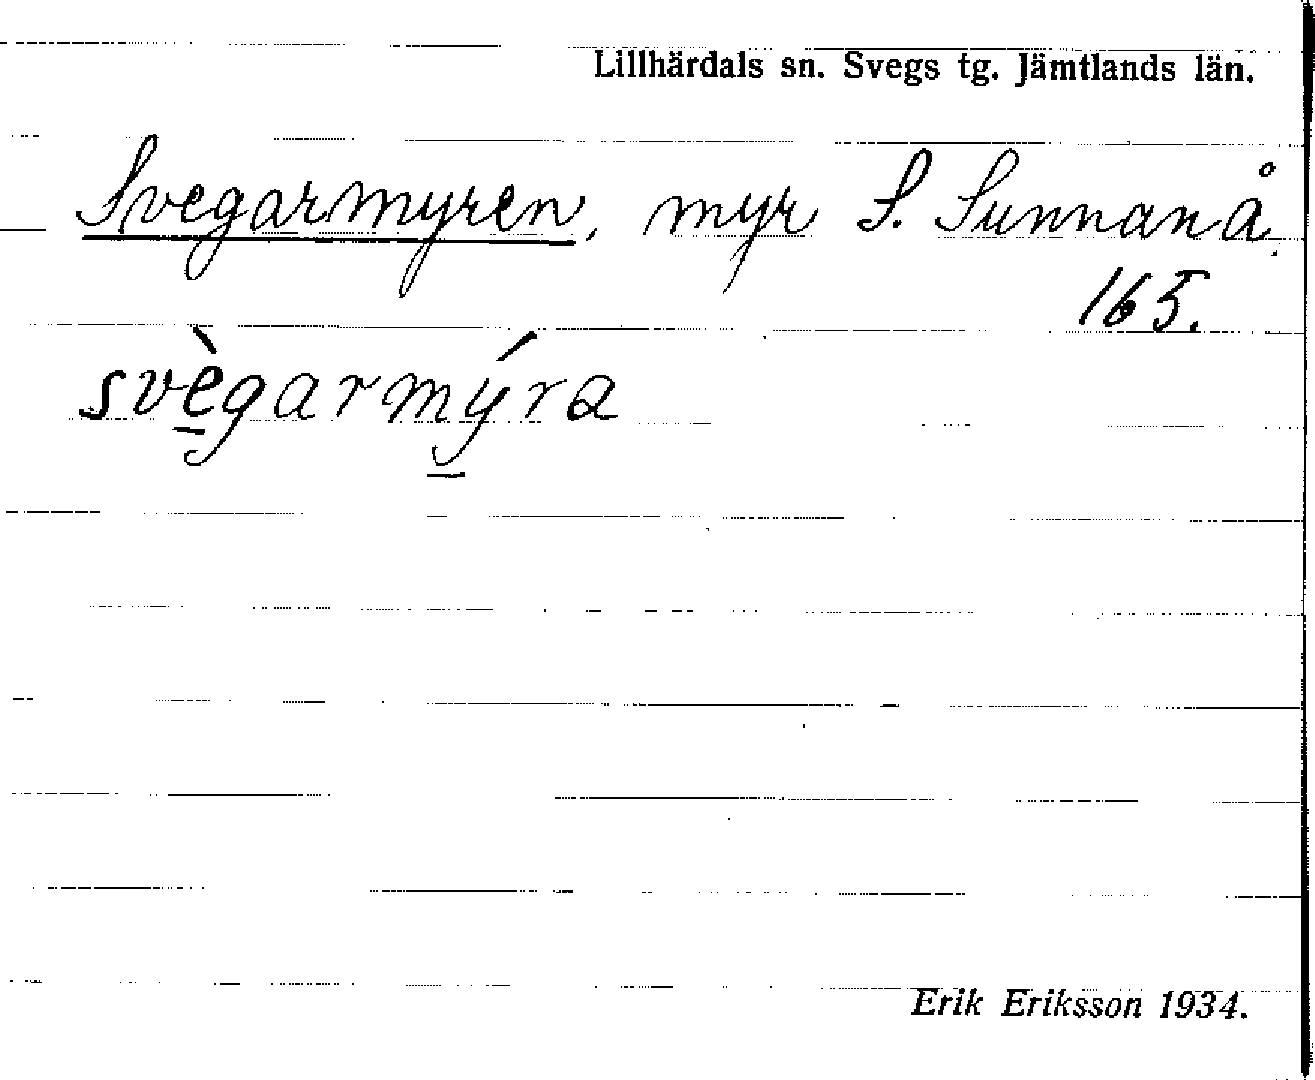 Lillhärdals sn. Svegs tg. Jämtlands län.
Svegarmyren, myr S. Sunnanå.
165.
svè̱garmý̱ra
Erik Eriksson 1934.